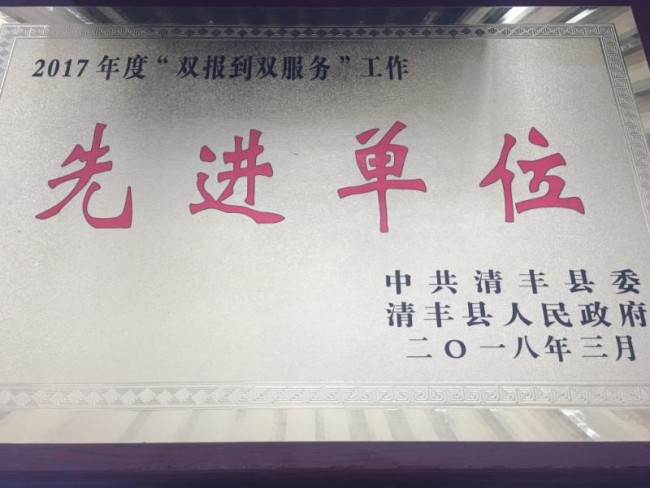 2017年度“双报到双服务”工作
先进单位
中共清丰县委
清丰县人民政府
二〇一八年三月